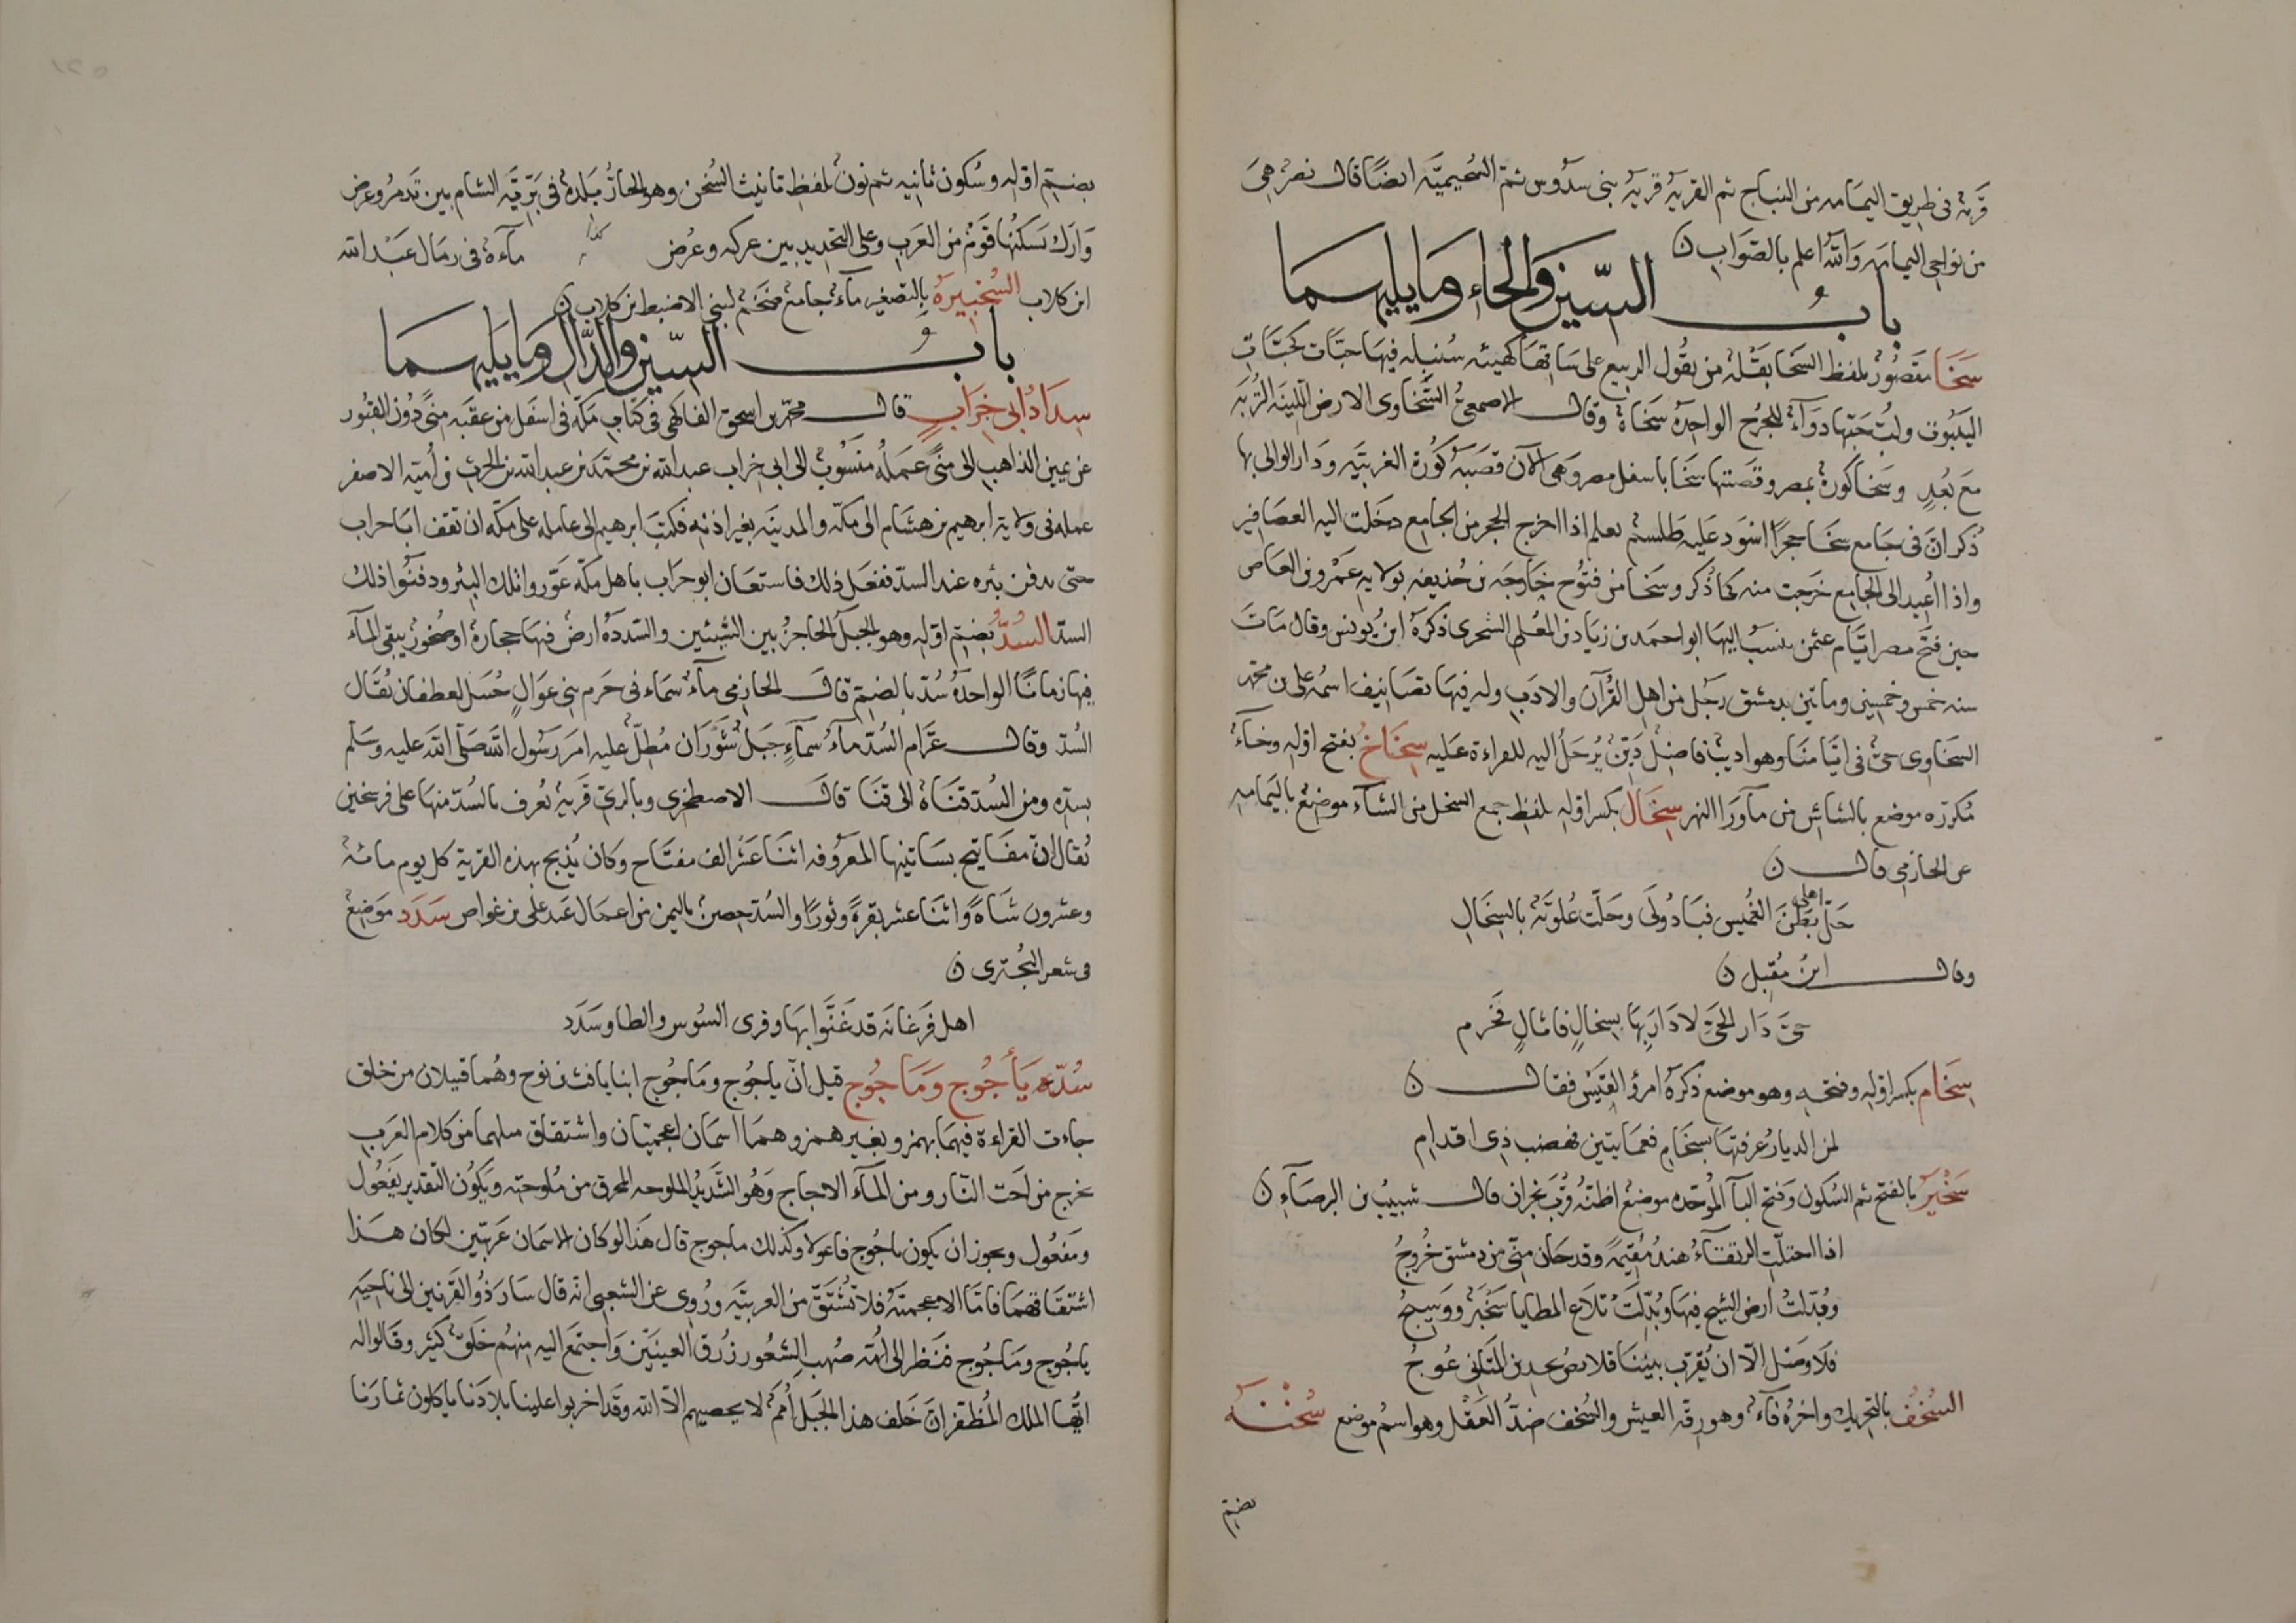 قرية فى طريق اليمامه من النباج ثم القريه قرية بنى سدوس ثم السحيميّه ايضًا قال نصر هى
من نواحى اليمامه والله اعلم بالصواب ن
باب السين والخاء وما يليهما
سَخَا مقصُورٌ بلفظ السَخا بَقْلة من بقُول الربيع على ساقها كهيئه سُنبله فيها حبّات كحبّات
اليَنبوت ولبُّ حَبّها دوآءٌ للجُرح الواحدة سَخاة وقال الاصمعىُّ السَّخاوى الارض اللّينة التُربَه
مَع بُعدٍ وسَخا كورة بمصر وقصَبتها سَخَا باسفل مصر وهى الآن قصَبَة كُورة الغربيَّه ودار الوالى بها
ذُكر انّ فى جَامع سَخَا حجرًا اسْوَد عليه طلسم يعلم اذا اخرج الحجر من الجامع دخلت اليه العصافير
واذا اُعيد الى الجامع خرجت منه كما ذُكر وسَخا من فتُوح خارجَه بن حُذيفه بولايه عَمْرو بن العاص
حين فتَح مصر ايّام عثمن ينسبُ اليها ابو احمد بن زياد بن المُعلى السَخوى ذكرهُ ابنُ يونس وقال مَاتَ
سنه خمس وخمسين وماتين بدمشق رجُل من اهل القُرآن والادب وله فيها تصانيف اسمُه على بن محمد
السخاوى حىٌّ فى ايّامنا وهو اديبٌ فاضلٌ دَيّنٌ يُرحَلُ اليه للقراءة عَليه سِخَاخٌ بفتح اوّله وخآءٌ
مُكرّره موضع بالشاش من مآوَرا النهر سِخَال بكسر اوّله بلفظ جمع السخل من الشآء موضعٌ باليمامه
عن الحازمى قال ن
حَلَّ اهلى بَطْنَ الغُميس فبَادُولَى وحَلّت عُلوِيّةٌ بالسِخَالِ
وقال ابنُ مُقبل ن
حىّ دَار الحىّ لا دَارَ بِهَا بِسخالٍ فاثالٍ فَخَرم
سِخَام بكسر اوّله وفتحه وهو موضع ذكرهُ امرؤ القَيْس فقال ن
لمن الديارُ عرفتهَا بسَخَامِ فعَمَايتين فهضب ذى اقدام
سَخْبَرٌ بالفتح ثم السُكون وفتح البآ الموُحّده موضعٌ اظنّهُ قُرْبَ نجران قال شبيبُ بن البرصَآءِ ن
اذا احتلّت الرنقاءُ هندُ مُقيمةً وقد حَان منّى من دمشق خُروجُ
وبُدّلتْ ارض الشيح فيها وبُدّلَتْ تلَاع المطايا سَخْبَرٌ ووَسِيجُ
فلَا وصْل الّا ان يُقرّب بينَنا قلائصُ يجدبن المثانى عُوجُ
السُخُفُ بالتحريك واخرُه فآء وهو رقّه العيش والسُخف ضدُّ العَقْل وهو اسمُ موضع سُخْنَة
بضمّ
بضمّ اوّله وسُكون ثانيه ثم نونٌ بلفظ تانيث السُخن وهو الحارّ بَلدهٌ فى بَرّيّة الشام بين تَدمُر وعُرض
وَارَك يَسكنُها قومٌ من العَرب وعلى التحديد بين عركه وعُرض كذا مآءة فى رمَال عَبْد الله
ابن كلاب السُخَيبرَة بالتصغير مآءٌ جامعٌ ضخمٌ لبنى الاضبط بن كلاب ن
باب السين والدّال وما يليهما
سِدَادُ ابى خِرَابٍ قال محمّد بن اسحق الفاكهى فى كتاب مكّة فى اسفل من عقبَه مِنًى دُون القبُور
عن يمين الذاهب الى منًى عمَلُه منسُوبٌ الى ابى خراب عبد الله بن محمّد بن عبد الله بن الحرث بن أميّه الاصغر
عمله فى ولاية ابرهيم بن هشام الى مكّه والمدينه بغير اذنه فكتبَ ابرهيم الى عامله على مكّه ان تقف ابَا حراب
حتى يدفن بئره عند السدّ ففعَل ذلك فاستعَان ابو حرَاب باهل مكّه عَوّروا تلك البئر ودفنُوا ذلك
السدّ السُدُّ بضمّ اوّله وهو الجبل الحاجز بين الشيئين والسّددةُ ارضٌ فيها حجارةٌ او صُخورٌ يبقى المآءُ
فيها زمانًا الواحدةُ سُدّ بالضم قال الحازمى مآءُ سمَاء فى حَرم بنى عوَالٍ جُبيل لغطفان يُقَال
السُدّ وقال عرَّام السُدّ مآءُ سمآءٍ جَبَل شَوْرَان مُطِلٌّ عليه امَرَ رسُول الله صَلّى الله عليه وسَلّم
بسدّه ومن السُدّ قنَاةٌ الى قبَا قال الاصطخرى وبالرىّ قريةٌ تعُرف بالسُدّ منها على فرسخين
يُقال انّ مفَاتيح بسَاتينها المعرُوفه اثنَا عَشَر الف مفتَاح وكان يُذبح بهذه القرية كل يوم مائةُ
وعشرون شَاةً واثنَا عشر بقرةً وثورًا والسُدّ حِصنٌ باليمن من اعمَال عَبد على بن غواص سَدَد موَضعٌ
فى شعر البُحترى ن
اهل فرغانَه قد غنّوا بهَا وقرى السُوس والطا وسَدَد
سُدّ يَأجُوج وَمَاجُوج قيل انّ ياجُوج ومَاجُوج ابنا يافث بن نوح وهُما قبيلان من خلق
جاءت القراءة فيهمَا بهمز وبغيرهمز وهما اسمَان اعجميّان واشتقاق مثلهما من كلام العرَب
يخرج من اجّت النّار ومن المآء الاُجاج وهُو الشَديدُ الملوحه المحرق من مُلوحته ويكوُن التّقدير يَفعُول
ومَفعُول ويجوز ان يكون ياجُوج فاعولا وكذلك ماجوج قال هَذَا لوكان الاسمَان عَربيّين لكان هذا
اشتقاقهمَا فامّا الاعجميّةُ فلا تُشتَقّ من العربيّه ورُوى عن الشعبى انّه قال سَارَ ذُو القَرْنين الى ناحيَهِ
ياجُوج ومَاجُوج فنَظر الى اُمّه صُهب الشعُور زُرق العينَيْن وَاجتمعَ اليه مِنهُم خَلقٌ كثيرٌ وقَالوا له
ايُّها الملك المُظفّر انّ خَلف هذا الجبَل أُمَمٌ لا يحصيهم الّا الله وقَد اخربوا علينا بلادَنا ياكلون ثمارَنا